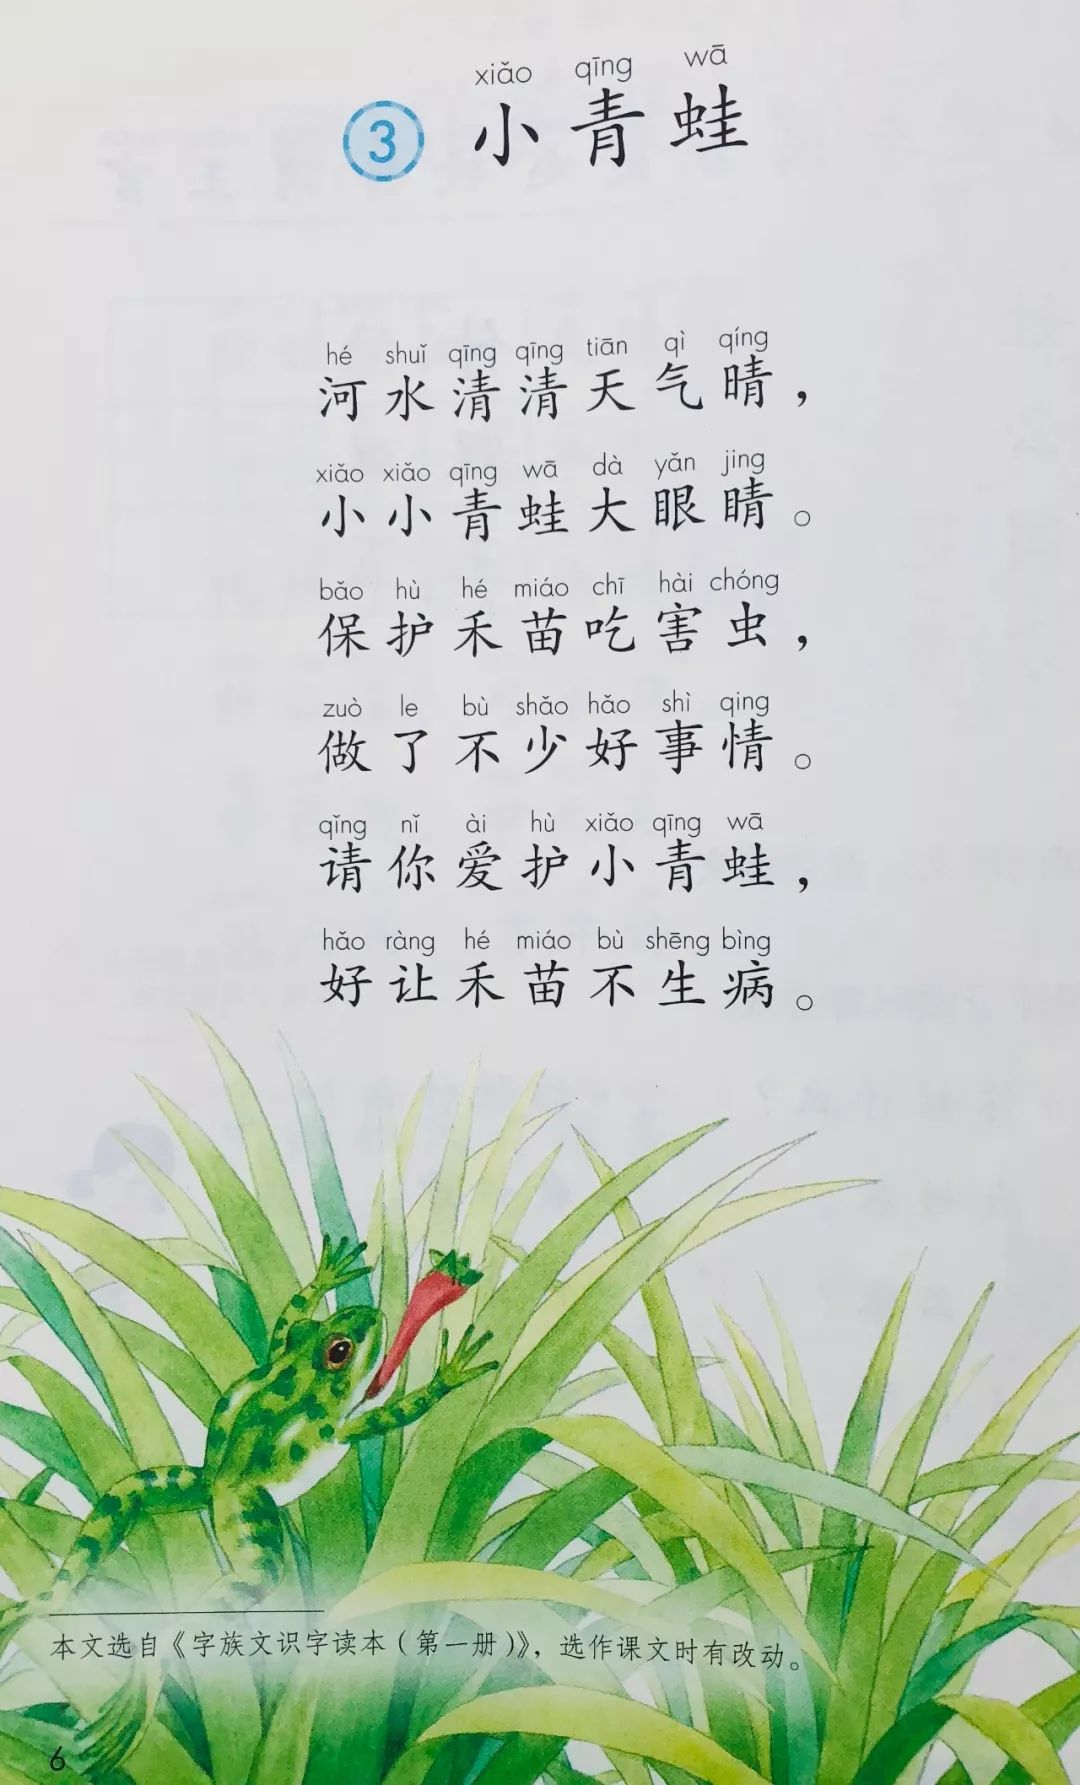 xiǎo qīng wā
3 小青蛙
hé shuǐ qīng qīng tiān qì qíng
河水清清天气晴，
xiǎo xiǎo qīng wā dà yǎn jing
小小青蛙大眼睛。
bǎo hù hé miáo chī hài chóng
保护禾苗吃害虫，
zuò le bù shǎo hǎo shì qing
做了不少好事情。
qǐng nǐ ài hù xiǎo qīng wā
请你爱护小青蛙，
hǎo ràng hé miáo bù shēng bìng
好让禾苗不生病。
本文选自《字族文识字读本（第一册）》，选作课文时有改动。
6